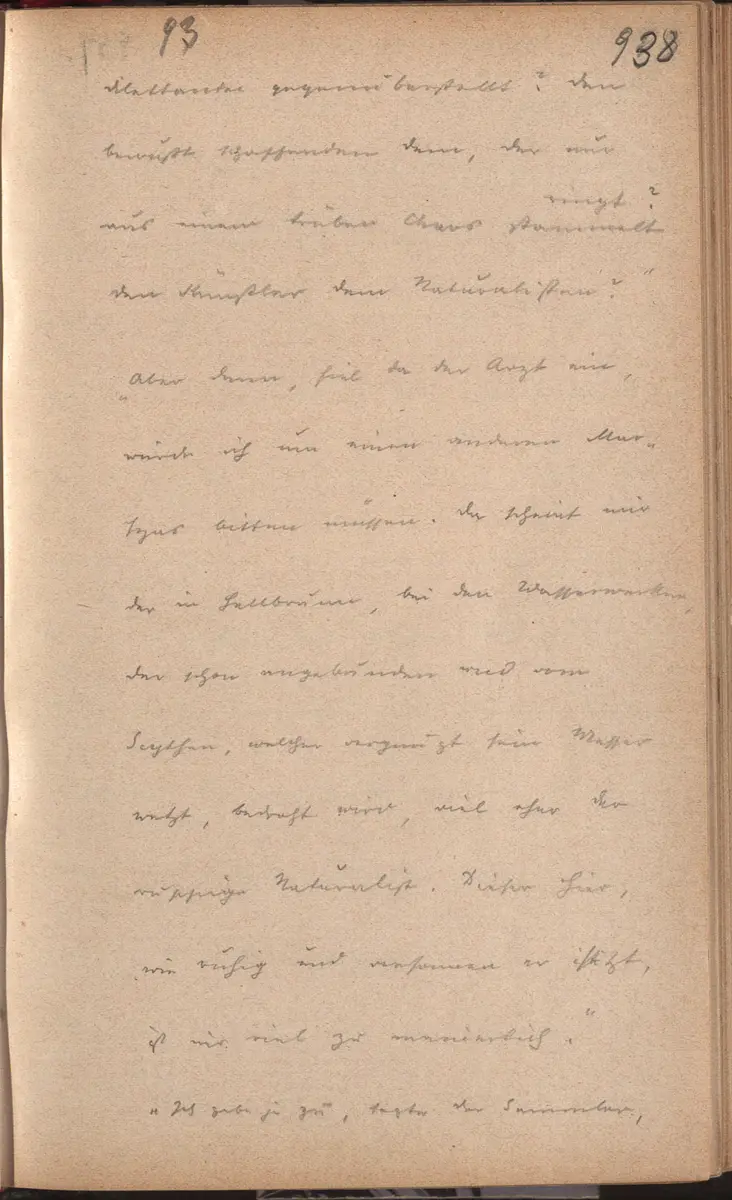 93
938
Dilettanten gegenüberstellt? den
bewußt schaffenden dem, der nur
ringt?
aus einem trüben Chaos stammelt
den Künstler dem Naturalisten?"
"Aber dann, fiel da der Arzt ein,
würde ich um einen anderen Mar-
syas bitten müssen. Da scheint mir
der in Hellbrunn, bei den Wasserwerken,
der schon angebunden und vom
Scythen, welcher vergnügt sein Messer
wetzt, bedroht wird, viel eher der
ruppige Naturalist. Dieser hier,
wie ruhig und versonnen er sitzt,
ist mir viel zu manierlich."
"Ich gebe ja zu, sagte der Sammler,